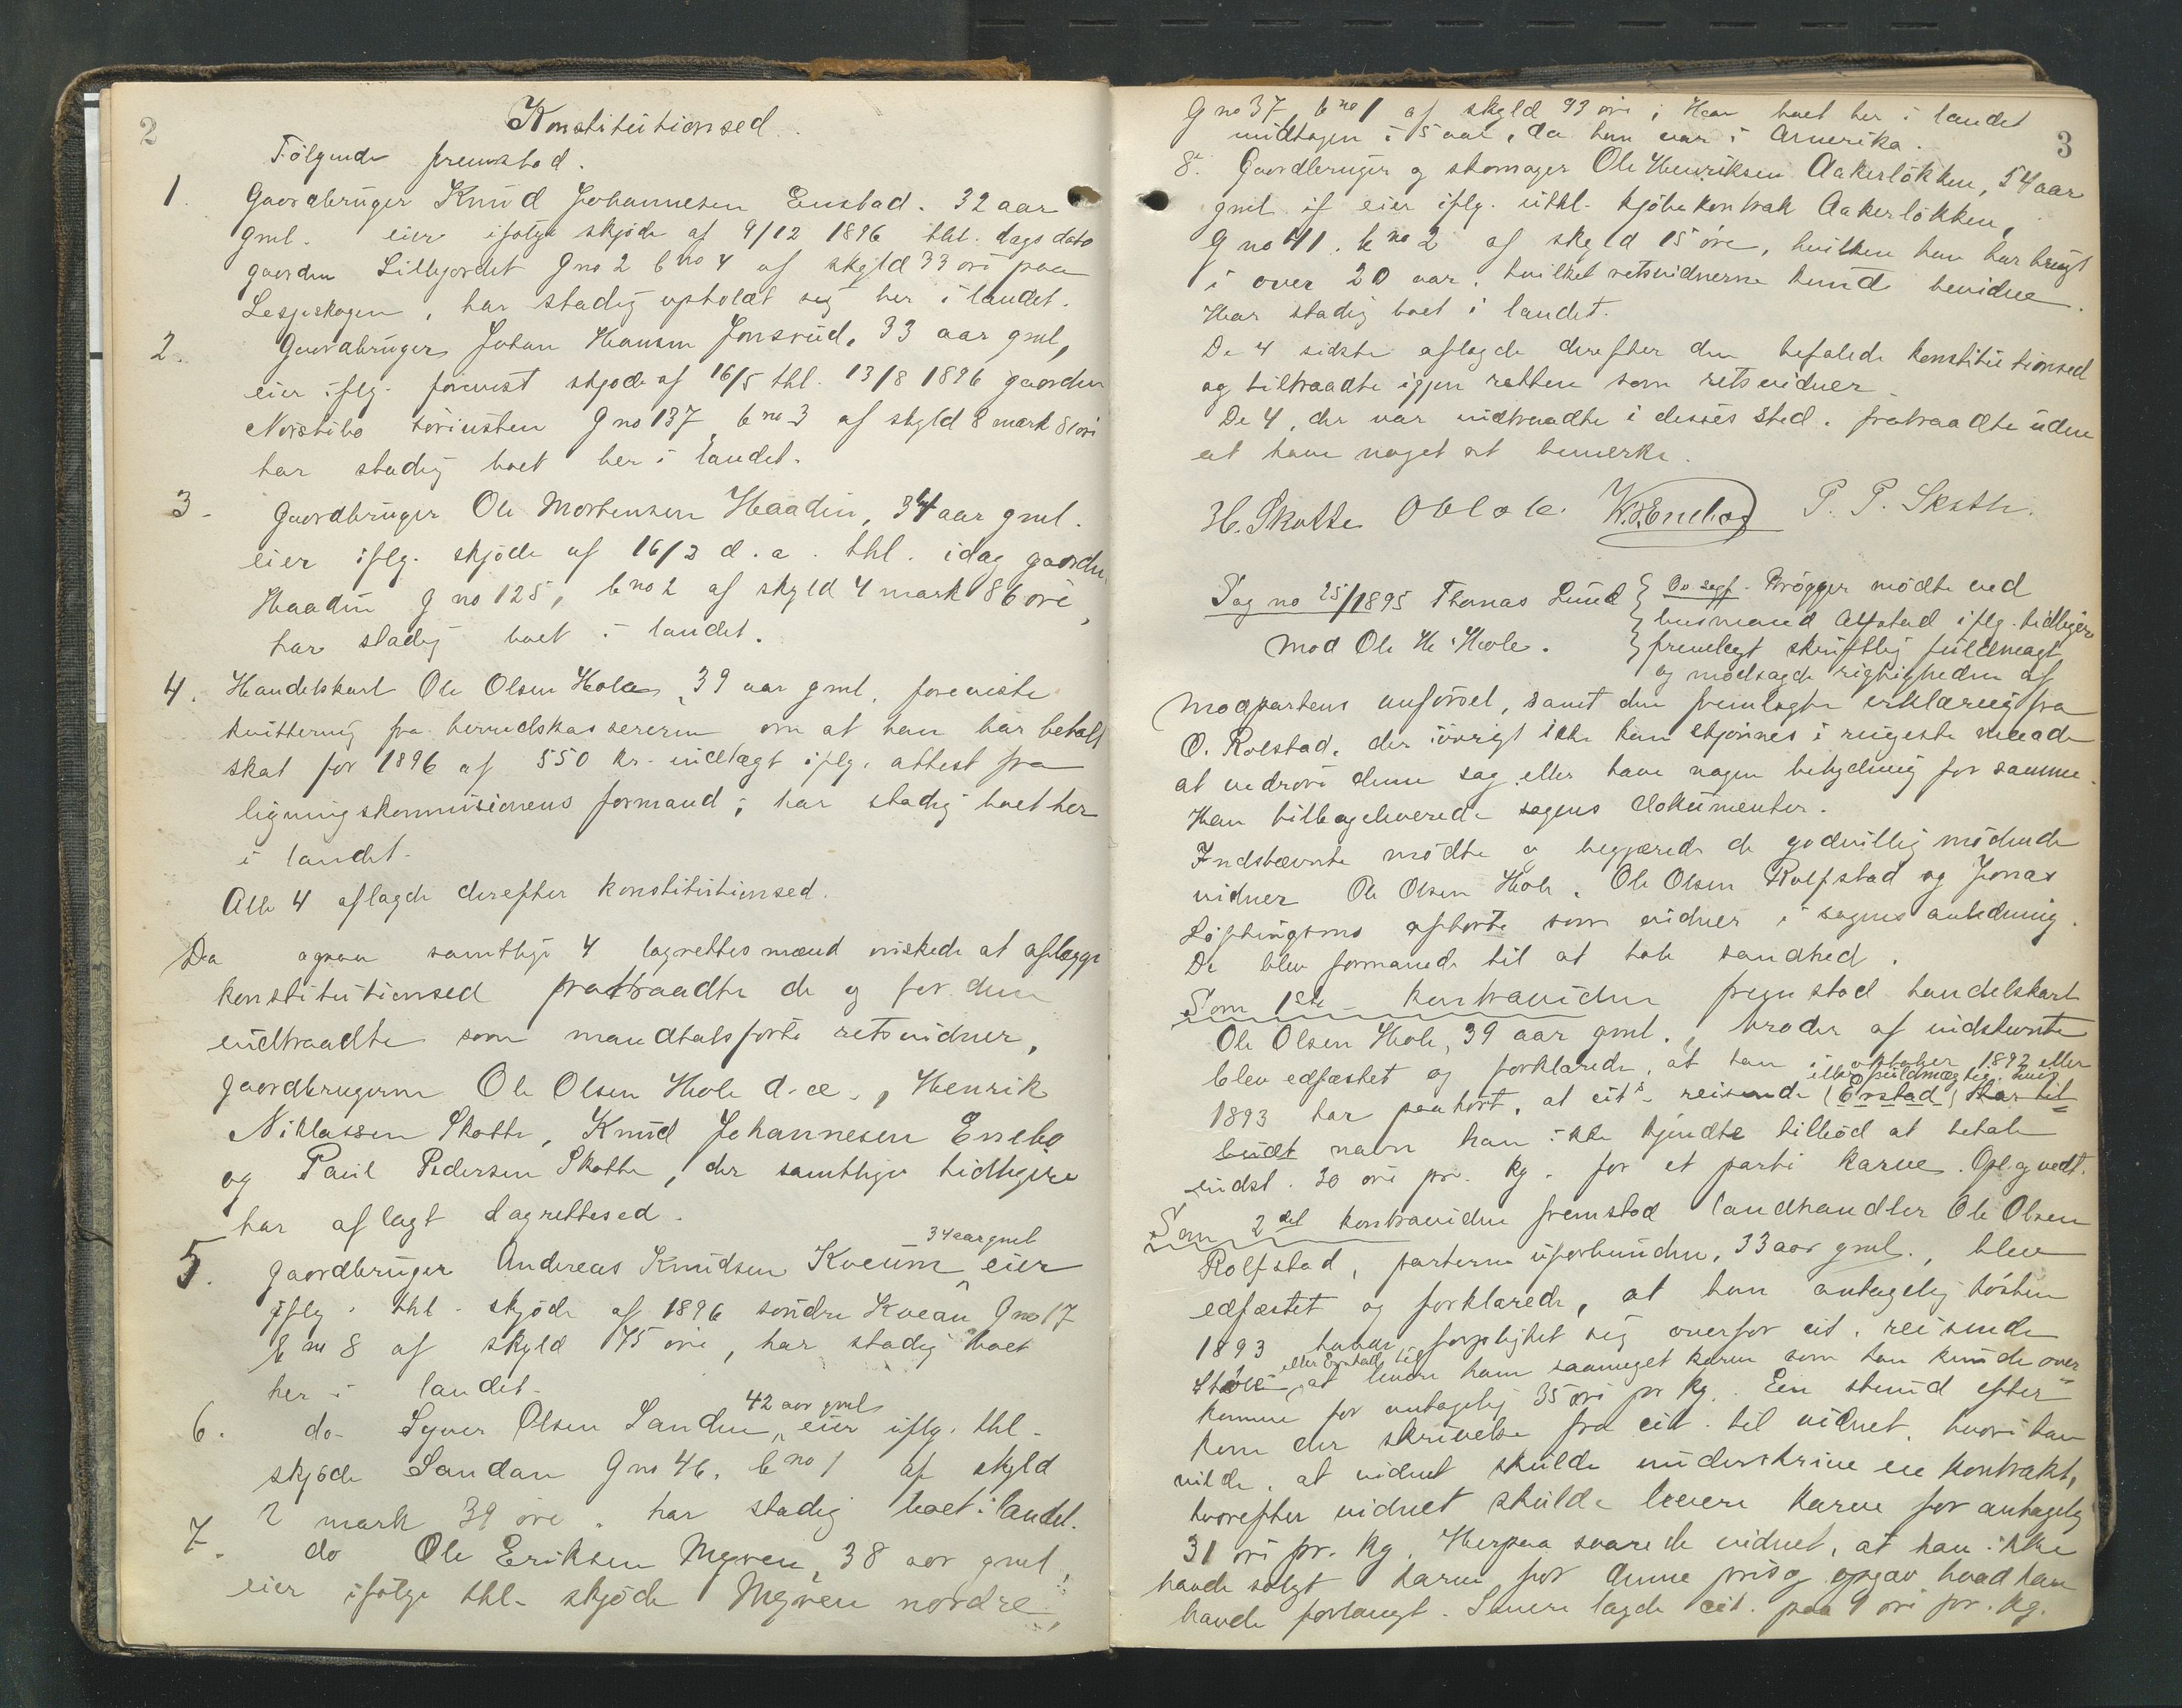 2
Konstitutionsed.
Følgende fremstod.
1. Gaardbruger Knud Johannesen Enstad. 32 aar
gml. eier ifølge skjøde af 9/12 1896 thl. dags dato
gaarden Lillejordet gno 2 bno 4 af skyld 33 øre paa
Lesjeskogen, har stadig opholdt sig her i landet.
2. Gaardbruger Johan Hansen Jonsrud, 33 aar gml,
eier iflg. forevist skjøde af 16/5 thl. 13/8 1896 gaarden
Norstibø gno 137, bno 3 af skyld 8 mark 81 øre
har stadig boet her i landet.
3. Gaardbruger Ole Mortensen Haadin, 34 aar gml.
eier iflg. skjøde af 16/3 d.a. thl. idag gaarden
Haadin g no 125, bno 2 af skyld 4 mark 86 øre,
har stadig boet i landet.
4. Handelskarl Ole Olsen Hole, 39 aar gml, foreviste
kvittering fra herredskassereren om at han har betalt
skat for 1896 af 550 kr. indtægt iflg. attest fra
ligningskommisionens formand; har stadig boet her
i landet.
Alle 4 aflagde derefter konstitutionsed.
Da ogsaa samtlige 4 lagrettesmænd ønskede at aflægge
konstitutionsed fratraadte de og for dem
indtraadte som mandtalsførte retsvidner,
gaardbrugerne Ole Olsen Hole d.æ., Henrik
Niklassen Skotte, Knud Johannesen Enebo
og Paul Pedersen Skotte, der samtlige tidligere
har aflagt lagrettesed.
34 aar gml
5. Gaardbruger Andreas Knudsen Kveum, eier
iflg. thl. skjøde af 1896 søndre Kveum gno 17
b no 8 af skyld 75 øre, har stadig boet
her i landet.
42 aar gml
6. do. Syver Olsen Sanden, eier iflg. thl.
skjøde Sandan gno 46, bno 1 af skyld
2 mark 39 øre, har stadig boet i landet.
7. do Ole Eriksen 38 aar gml,
eier ifølge thl. skjøde nordre,
3
g no 37, bno 1 af skyld 93 øre; Har boet her i landet
undtagen i 5 aar, da han var i Amerika.
8. Gaardbruger og skomager Ole Henriksen Aakerløkken, 54 aar
gml. eier iflg. uthl. kjøbekontrakt Aakerløkken,
g no 41. b no 2 af skyld 15 øre, hvilken han har brugt
i over 20 aar, hvilket retsvidnerne kunde bevidne.
Har stadig boet i landet.
De 4 sidste aflagde derefter den befalede konstitutionsed
og tiltraadte igjen retten som retsvidner.
De 4, der var indtraadte i disses sted, fratraadte uden
at have noget at bemerke.
H. Skotte O O Hole K.J. Enebo P. P. Skotte.
Sag no 25/1895 Thomas Lund
mod Ole H. Hole.
Brøgger mødte ved
husmand Alfstad iflg. tidligere
fremlagt skriftlig fuldmagt
og modsagde rigtigheden af
modpartens anførsel, samt den fremlagte erklæring fra
O. Rolstad, der iøvrigt ikke kan skjønnes i ringeste maade
at vedrøre denne sag eller have nogen betydning for samme.
Han tilbageleverede sagens dokumenter.
Indstævnte mødte og begjærede de godvillig mødende
vidner Ole Olsen Hole, Ole Olsen Rolfstad og Jonas
Løftingsmo afhørte som vidner i sagens anledning.
De blev formanede til at tale sandhed.
Som 1ste kontravidne fremstod handelskarl
Ole Olsen Hole, 39 aar gml., broder af indstevnte
blev edfæstet og forklarede, at han i oktober 1892 eller
eller fuldmægtig, hvis
1893 har paahørt, at cit.s reisende (Enstad)
navn han ikke kjendte tilbød at betale
indst. 30 øre pr. kg. for et parti karve. Opl. og vedt.
Som 2det kontravidne fremstod landhandler Ole Olsen
Rolfstad, parterne uforbunden, 33 aar gml., blev
edfæstet og forklarede, at han antagelig høsten
1893 havde forpligtet sig overfor cit. reisende
eller Enstad til
at levere ham saameget karve som han kunde over-
komme for antagelig 35 øre pr kg. En stund efter
kom der skrivelse fra cit. til vidnet, hvori han
vilde, at vidnet skulde underskrive en kontrakt,
hvorefter vidnet skulde levere karve for antagelig
31 øre pr. kg. Herpaa svarede vidnet, at han ikke
havde solgt karve for denne pris og opgav hvad han
havde forlangt. Senere lagde cit. paa 1 øre pr. kg.